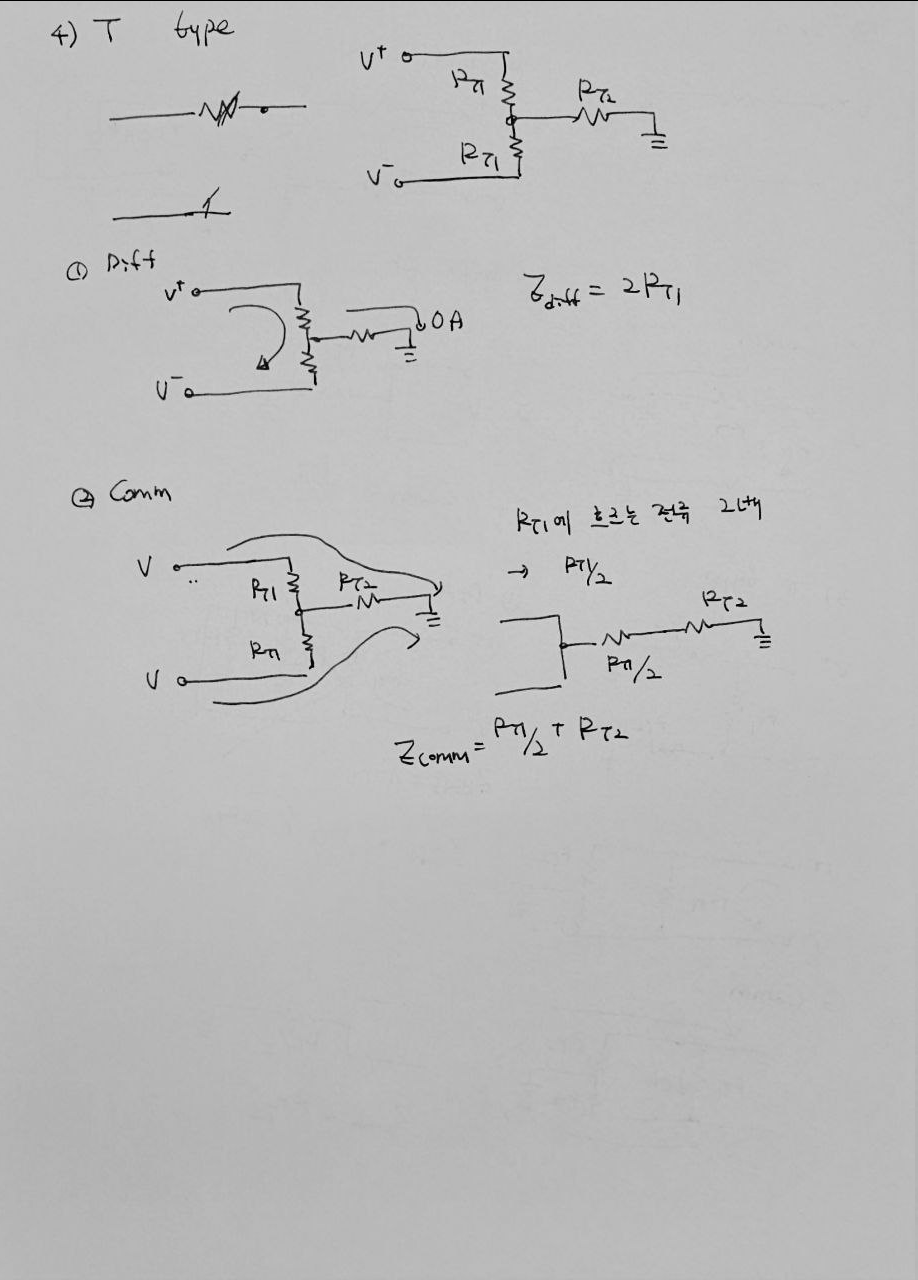 4) T type
V+
RT1
RT2
RT1
V-
① Diff
V+
0A
V-
Zdiff = 2RT1
② Comm
V
RT1
RT2
RT1
V
RT1에 흐르는 전류 2배
→ RT1/2
RT2
RT1/2
Zcomm = RT1/2 + RT2